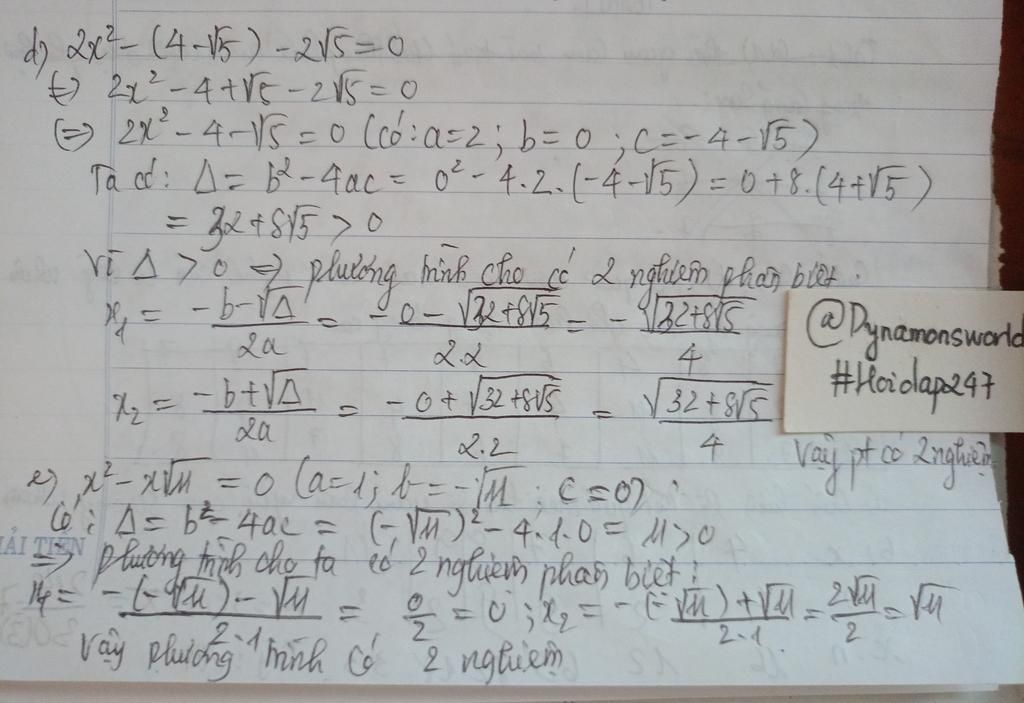 d) 2x² - (4-√5) - 2√5 = 0
(=) 2x² - 4 + √5 - 2√5 = 0
(=) 2x² - 4 - √5 = 0 (có: a=2; b=0; c=-4-√5)
Ta có: Δ = b² - 4ac = 0² - 4.2.(-4-√5) = 0 + 8.(4+√5)
= 32 + 8√5 > 0
Vì Δ > 0 => phương trình cho có 2 nghiệm phân biệt.
x₁ = (-b-√Δ)/2a = (-0-√(32+8√5))/2.2 = -√(32+8√5)/4
x₂ = (-b+√Δ)/2a = (-0+√(32+8√5))/2.2 = √(32+8√5)/4
@Dynamonsworld
#Hoidap247
Vậy pt có 2 nghiệm
e) x² - x√11 = 0 (a=1; b=-√11; c=0)
Có: Δ = b² - 4ac = (-√11)² - 4.1.0 = 11 > 0
ẢI TIẾN
=> phương trình cho ta có 2 nghiệm phân biệt:
x₁ = (-(-√11)-√11)/2.1 = 0/2 = 0; x₂ = (-(-√11)+√11)/2.1 = 2√11/2 = √11
Vậy phương trình có 2 nghiệm